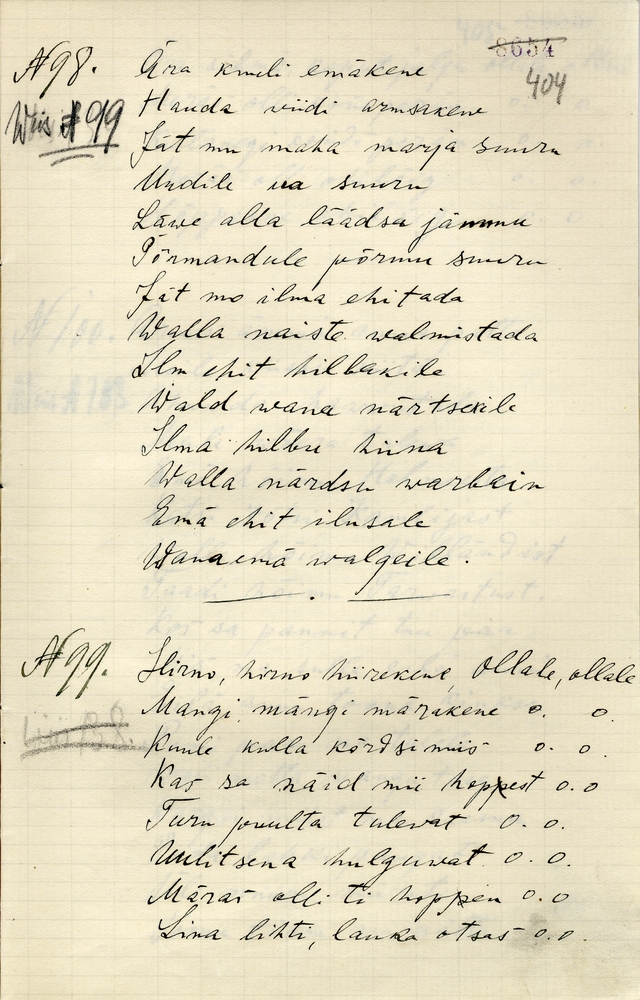 8654
404
N 98. Ära kuuli emäkene
Wiis N 99 Hauda viidi armsakene
Jät mu maha marja suuru
Uudile ua suuru
Läwe alla läädsa jämmu
Põrmandule põrmu suuru
Jät mo ilma ehitada
Walla naiste walmistada
Ilm ehit hilbakile
Wald wana närtsekile
Ilma hilbu hiina
Walla närdsu warbain
Emä ehit ilusale
Wanaemä walgeile.
N 99. Hirno, hirno hiirekene, Ollale, ollale
Mangi mängi märakene o. o.
Kuule kulla kõrdsimiis o. o.
Kas sa näid mii hoppest o. o
Turu puulta tulevat o. o.
Uulitsena hulguwat o. o.
Märas olli ti hoppen o. o
Lina likti, lauka otsas o. o.